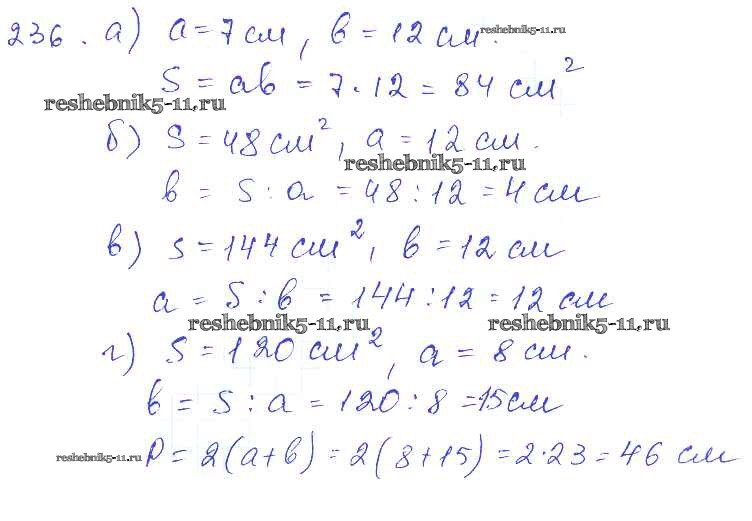 236. а) a = 7 см, в = 12 см. reshebnik5-11.ru
S = ав = 7 · 12 = 84 см²
reshebnik5-11.ru
б) S = 48 см², а = 12 см.
reshebnik5-11.ru
в = S : а = 48 : 12 = 4 см
в) S = 144 см², в = 12 см
а = S : в = 144 : 12 = 12 см
reshebnik5-11.ru reshebnik5-11.ru
г) S = 120 см², а = 8 см.
в = S : а = 120 : 8 = 15 см
reshebnik5-11.ru P = 2(а+в) = 2(8+15) = 2·23 = 46 см